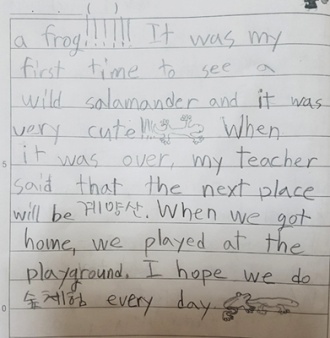 a frog!!!!!! It was my
first time to see a
wild salamander and it was
very cute!!! When
it was over, my teacher
said that the next place
will be 계양산. When we got
home, we played at the
playground. I hope we do
숲체험 every day